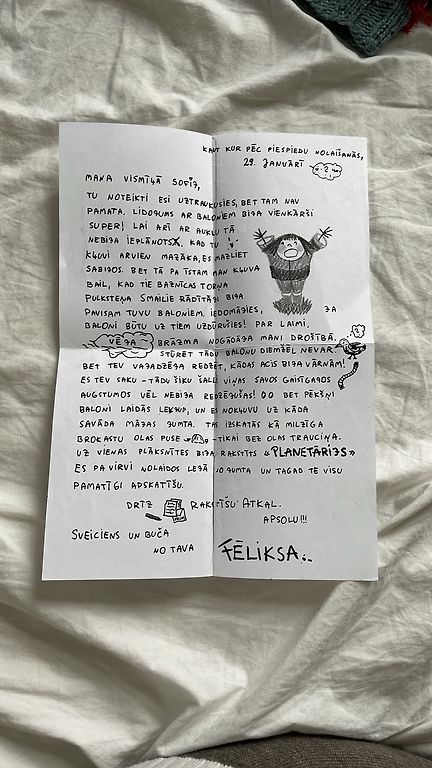 KAUT KUR PĒC PIESPIEDU NOLAIŠANĀS,
29. JANVĀRĪ
MANA VISMĪĻĀ SOFIJ,
TU NOTEIKTI ESI UZTRAUKUSIES, BET TAM NAV
PAMATA. LIDOJUMS AR BALONIEM BIJA VIENKĀRŠI
SUPER! LAI ARĪ AR AUKLU TĀ
NEBIJA IEPLĀNOTS. KAD TU
KĻUVI ARVIEN MAZĀKA, ES MAZLIET
SABIJOS. BET TĀ PA ĪSTAM MAN KĻUVA
BAIL, KAD TIE BAZNĪCAS TORŅA
PULKSTEŅA SMAILIE RĀDĪTĀJI BIJA
PAVISAM TUVU BALONIEM. IEDOMĀJIES, JA
BALONI BŪTU UZ TIEM UZDŪRUŠIES! PAR LAIMI,
VĒJA BRĀZMA NOGĀDĀJA MANI DROŠĪBĀ.
STŪRĒT TĀDU BALONU DIEMŽĒL NEVAR.
BET TEV VAJADZĒJA REDZĒT, KĀDAS ACIS BIJA VĀRNĀM!
ES TEV SAKU - TĀDU ŠIKU ŠALLI VIŅAS SAVOS GAISĪGAJOS
AUGSTUMOS VĒL NEBIJA REDZĒJUŠAS! BET PĒKŠŅI
BALONI LAIDĀS LEJUP, UN ES NOKĻUVU UZ KĀDA
SAVĀDA MĀJAS JUMTA. TAS IZSKATĀS KĀ MILZĪGA
BROKASTU OLAS PUSE - TIKAI BEZ OLAS TRAUCIŅA.
UZ VIENAS PLĀKSNĪTES BIJA RAKSTĪTS «PLANETĀRIJS»
ES PA VIRVI NOLAIDOS LEJĀ NO JUMTA UN TAGAD TE VISU
PAMATĪGI APSKATĪŠU.
DRĪZ RAKSTĪŠU ATKAL.
APSOLU!!!
SVEICIENS UN BUČA
NO TAVA FĒLIKSA...